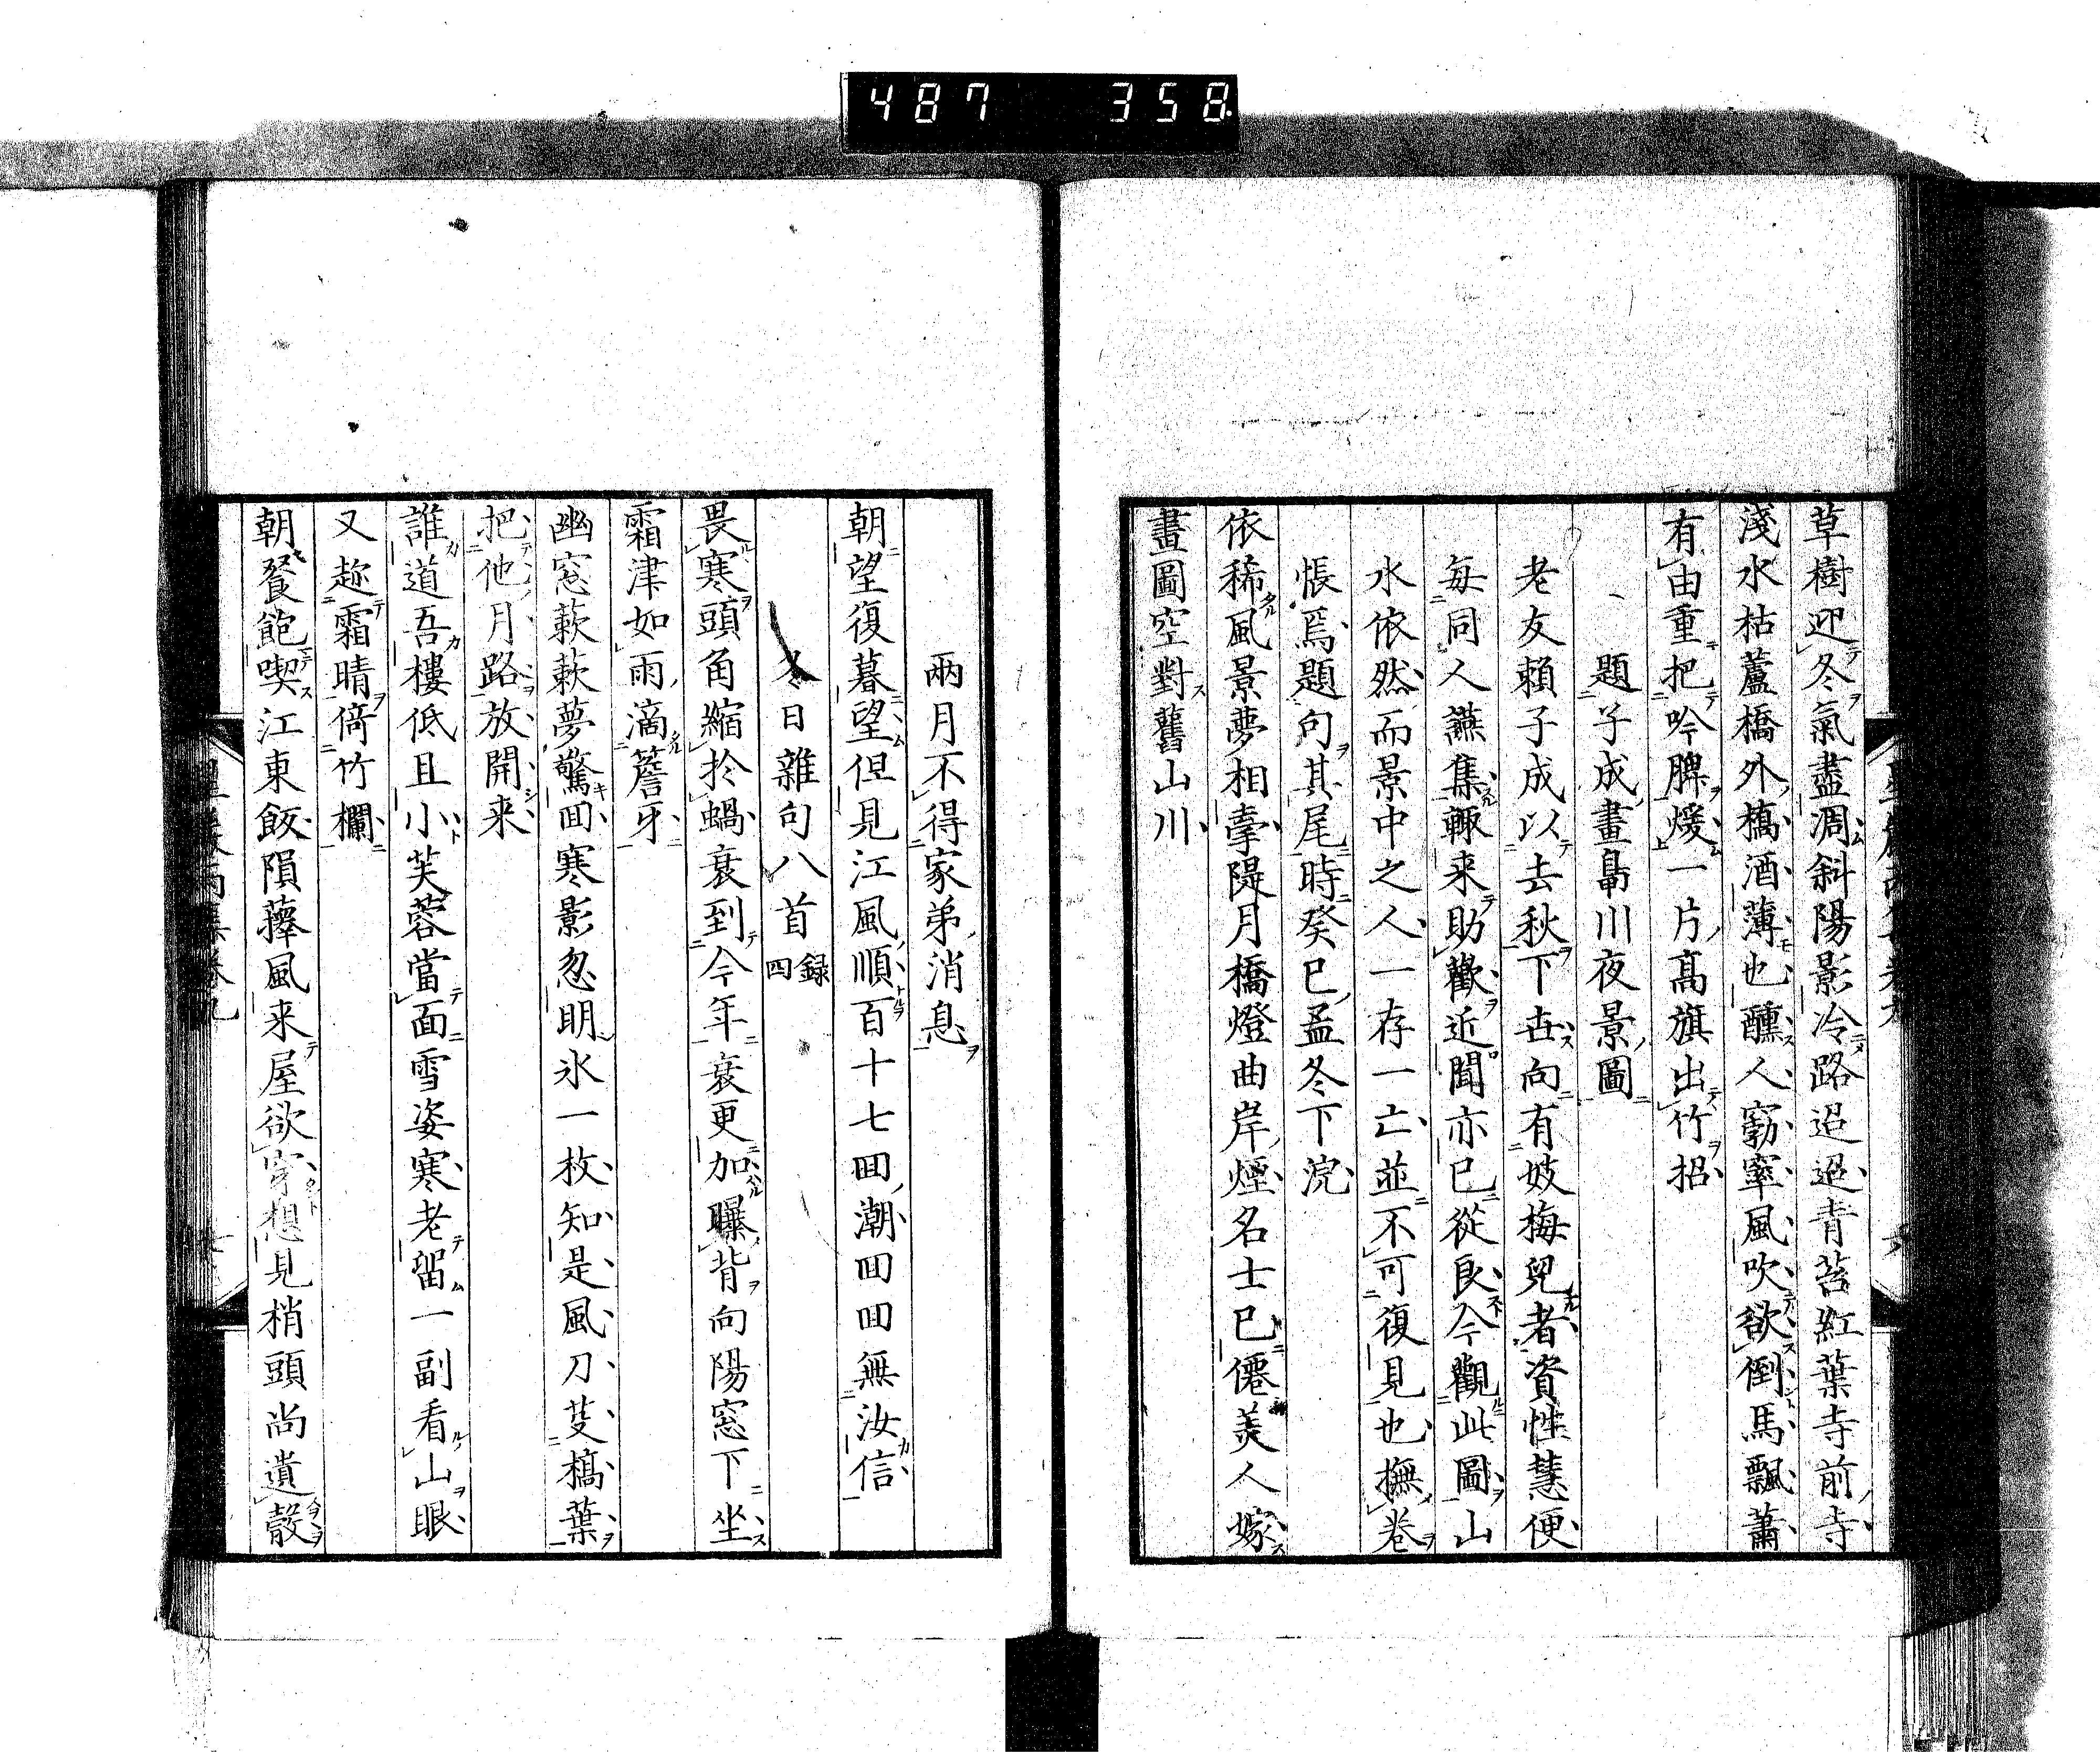 487 358
草樹迎冬氣盡凋斜陽影冷路迢迢青苔紅葉寺前寺
淺水枯蘆橋外橋酒薄也醺人窮窣風吹欲倒馬飄蕭
有由重把吟脾煖一片高旗出竹招
題子成畫鼻川夜景圖
老友賴子成以去秋下世向有妓梅兒者資性慧便
每同人讌集輙来助歡近聞亦已從良今觀此圖山
水依然而景中之人一存一亡並不可復見也撫卷
悵焉題句其尾時癸巳孟冬下浣
依稀風景夢相牽隄月橋燈曲岸煙名士已僊美人嫁
畫圖空對舊山川
兩月不得家弟消息
朝望復暮望但見江風順百十七回潮回回無汝信
冬日雜句八首 録四
畏寒頭角縮於蝸衰到今年衰更加曝背向陽窓下坐
霜津如雨滴簷牙
幽窓蔌蔌夢驚回寒影忽明氷一枚知是風刀芟槁葉
把他月路放開来
誰道吾樓低且小芙蓉當面雪姿寒老留一副看山眼
又趂霜晴倚竹欄
朝餐飽喫江東飯隕蘀風来屋欲穿想見梢頭尚遺殼